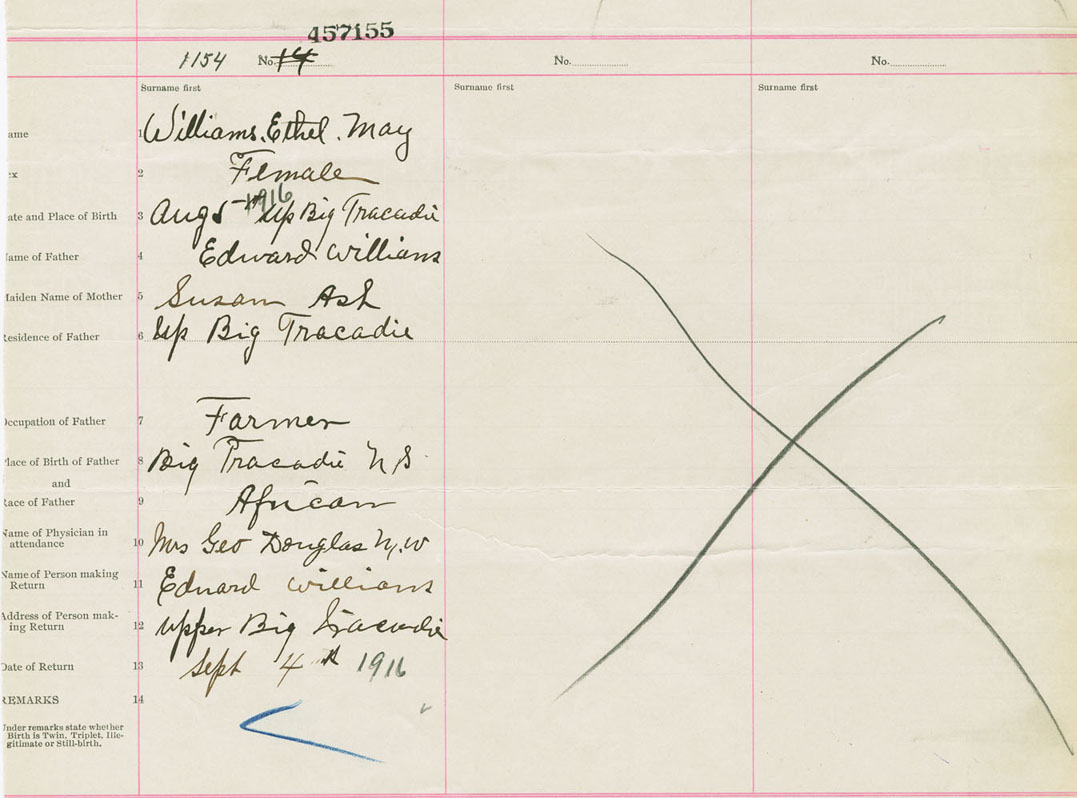 457155
1154 No. 14 No. No.
Surname first Surname first Surname first
ame 1 Williams. Ethel. May
ex 2 Female
ate and Place of Birth 3 Aug 5 - 1916 Up Big Tracadie
ame of Father 4 Edward Williams
Maiden Name of Mother 5 Susan Ash
Residence of Father 6 Up Big Tracadie
Occupation of Father 7 Farmer
Place of Birth of Father 8 Big Tracadie N S
and
Race of Father 9 African
Name of Physician in
attendance 10 Mrs Geo Douglas M.W
Name of Person making
Return 11 Edward Williams
Address of Person mak-
ing Return 12 Upper Big Tracadie
Date of Return 13 Sept 4th 1916
REMARKS 14
Under remarks state whether
Birth is Twin, Triplet, Ille-
gitimate or Still-birth.